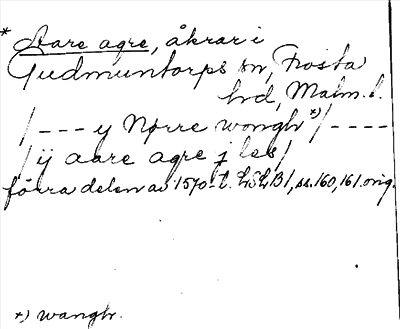 * Aare agre, åkrar i
Gudmuntorps sn, Frosta
hrd, Malm. l.
/--- y Nørre wongh *)/----
/ij aare agre j les/
förra delen av 1570 t. LSLB1, ss. 160, 161 orig.
*) wangh.